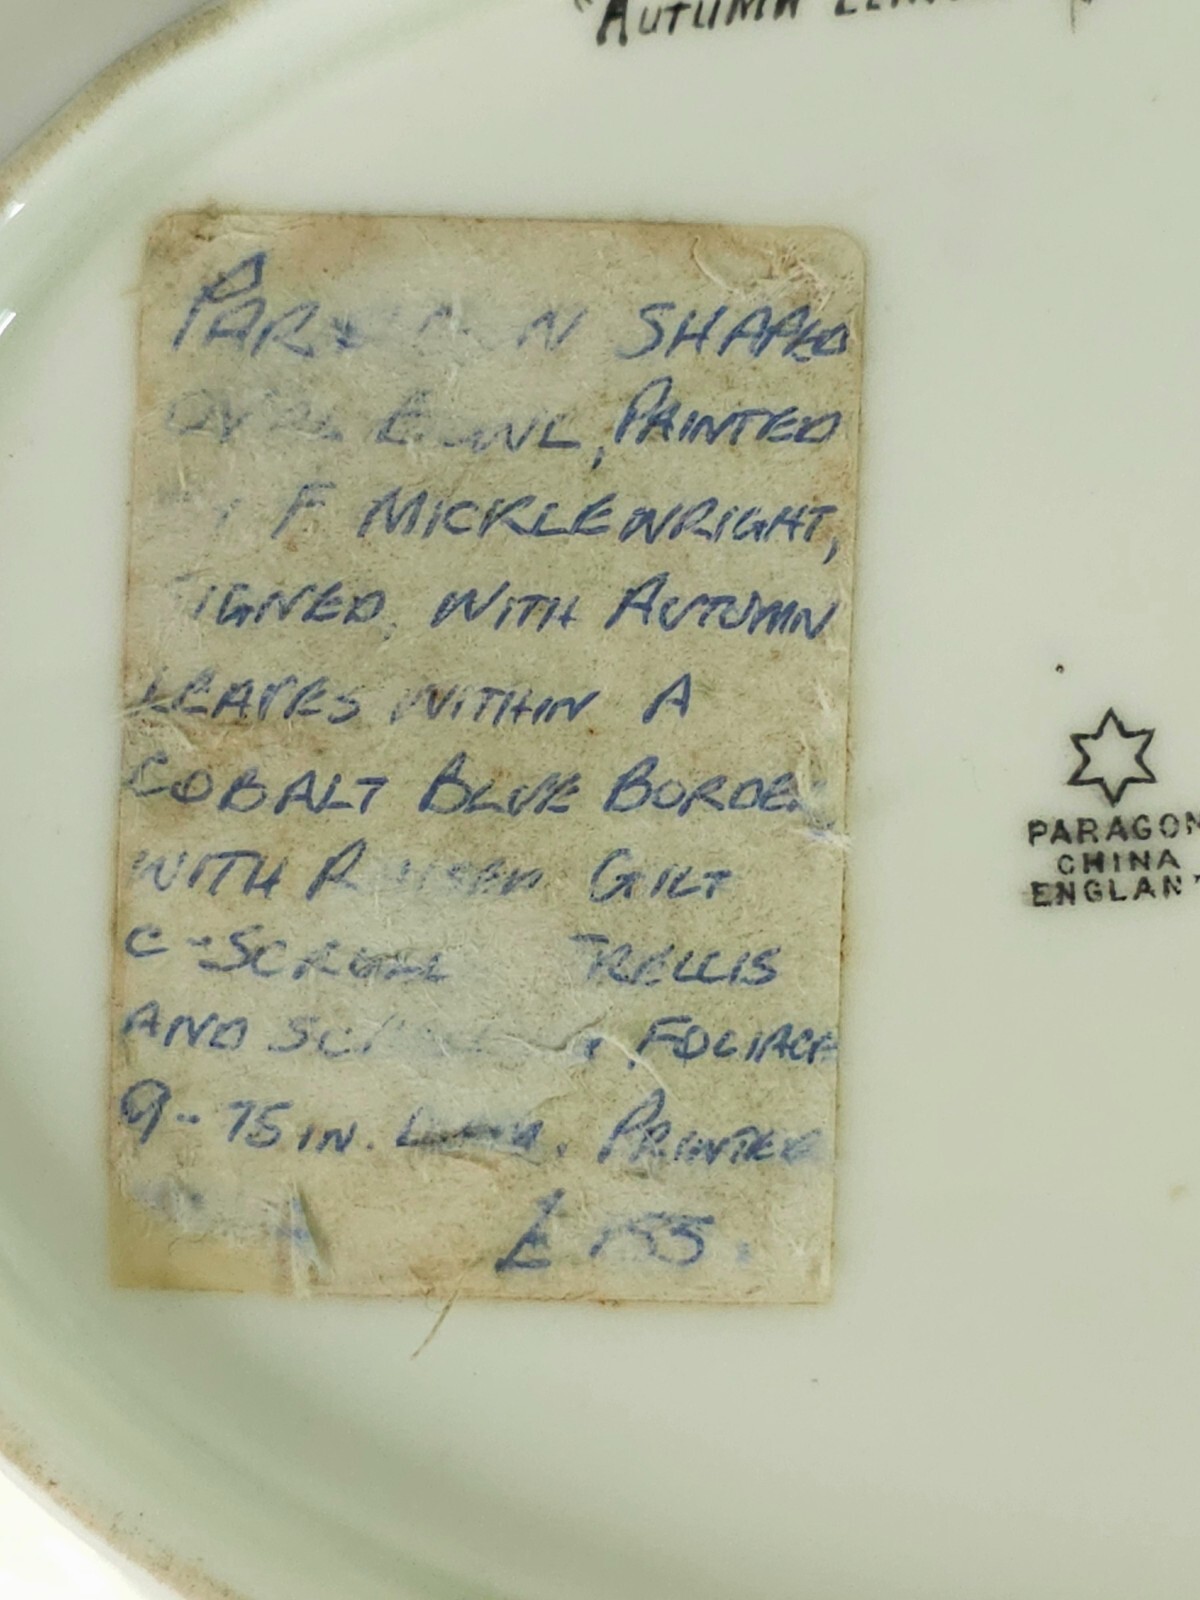 "AUTUMN
SHAPED
OVAL BOWL, PAINTED
F MICKLEWRIGHT,
SIGNED, WITH AUTUMN
LEAVES WITHIN A
COBALT BLUE BORDER
WITH GILT
C-SCROLL TRELLIS
AND FOLIAGE
9-75 IN. PRINTED
£
PARAGON
CHINA
ENGLAN